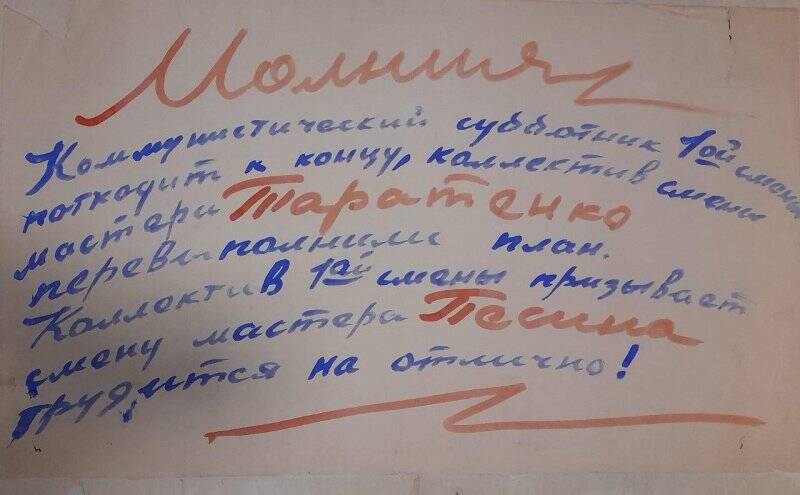 Молния
Коммунистический субботник 1ой смены
потходит к концу, коллектив смены
мастера Таратенко
перевыполнили план.
Коллектив 1ай смены призывает
смену мастера Песина
трудится на отлично!